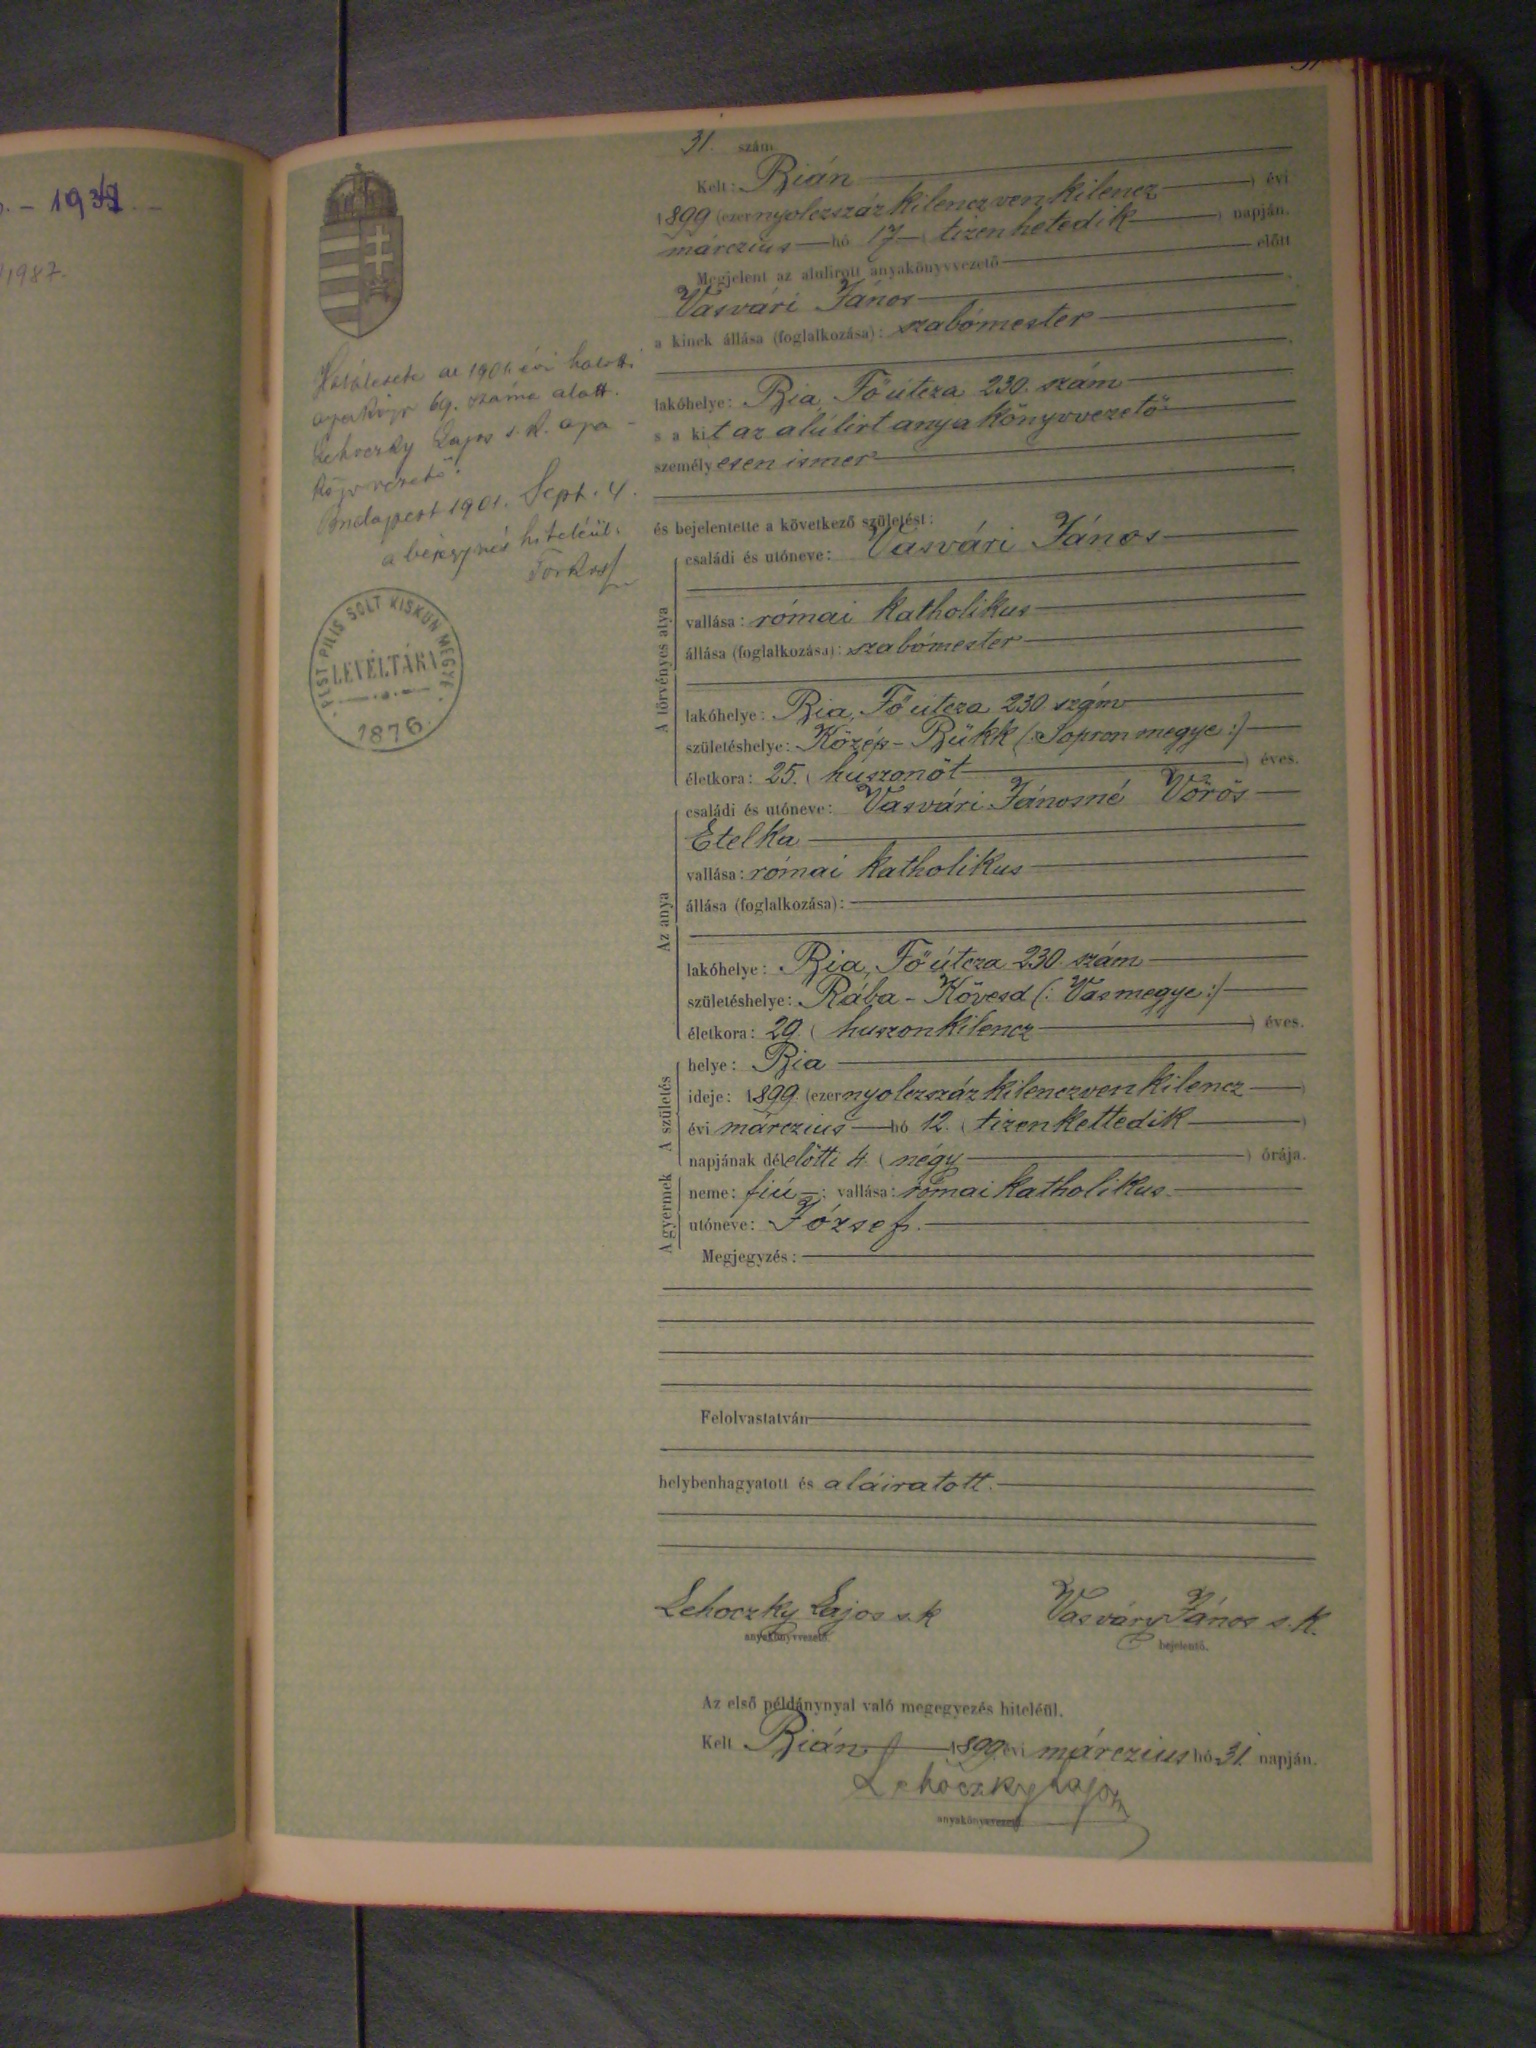 1987.
31. szám
Kelt: Bián
1899 (ezernyolczszázkilenczvenkilencz) évi
márczius hó 17 (tizenhetedik) napján.
Megjelent az alulirott anyakönyvvezető előtt
Vasvári János
a kinek állása (foglalkozása): szabómester
lakóhelye: Bia, Főútcza 230. szám
s a kit az alúlirt anyakönyvvezető
személyesen ismer
és bejelentette a következő születést:
A törvényes atya
családi és utóneve: Vasvári János
vallása: római katholikus
állása (foglalkozása): szabómester
lakóhelye: Bia, Főútcza 230 szám
születéshelye: Közép-Bükk (:Sopronmegye:)
életkora: 25. (huszonöt) éves.
Az anya
családi és utóneve: Vasvári Jánosné Vörös
Etelka
vallása: római katholikus
állása (foglalkozása):
lakóhelye: Bia, Főútcza 230. szám
születéshelye: Rába-Kövesd (: Vasmegye:)
életkora: 29. (huszonkilencz) éves.
A születés
helye: Bia
ideje: 1899. (ezernyolczszázkilenczvenkilencz)
évi márczius hó 12. (tizenkettedik)
napjának délelőtti 4. (négy) órája.
A gyermek
neme: fiú; vallása: római katholikus.
utóneve: József.
Megjegyzés:
Felolvastatván
helybenhagyatott és aláiratott.
Lehoczky Lajos s.k
anyakönyvvezető.
Vasváry János s.k.
bejelentő.
Az első példánynyal való megegyezés hiteléül.
Kelt Bián, 1899. évi márczius hó 31. napján.
Lehoczky Lajos
anyakönyvvezető.
Halálesete az 1901. évi halotti
anyakönyv 69. száma alatt.
Lehoczky Lajos s.k. anya-
könyvvezető.
Budapest 1901. Sept. 4.
a bejegyzés hiteléül:
PEST PILIS SOLT KISKUN MEGYE
LEVÉLTÁRA
1876.